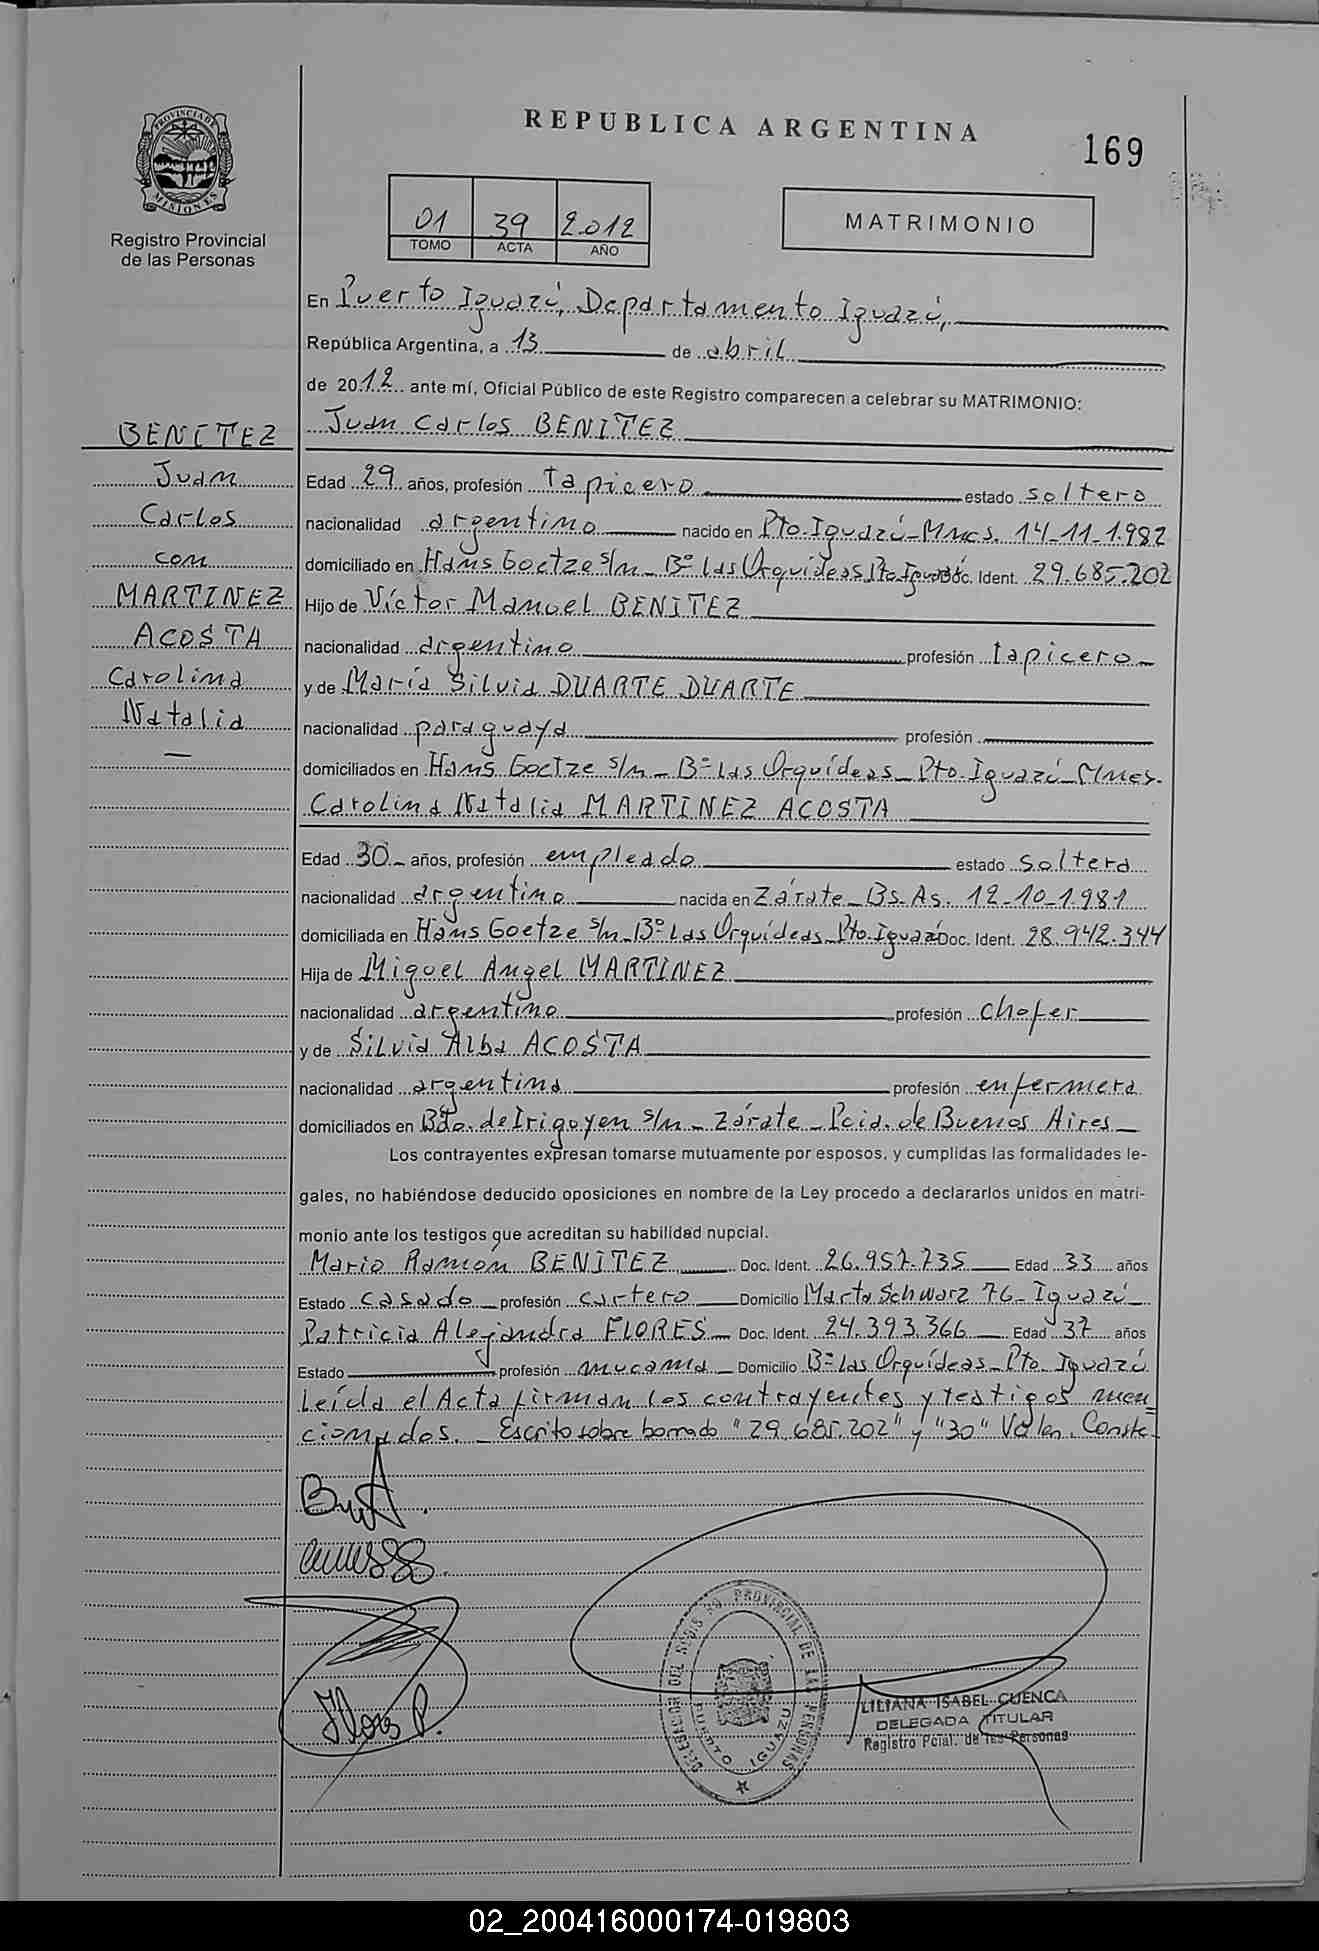 REPUBLICA ARGENTINA
169
PROVINCIA DE
MISIONES
Registro Provincial
de las Personas
01 39 2.012
TOMO ACTA AÑO
MATRIMONIO
En Puerto Iguazú, Departamento Iguazú,
República Argentina, a 13 de abril
de 2012 ante mí, Oficial Público de este Registro comparecen a celebrar su MATRIMONIO:
Juan Carlos BENITEZ
BENITEZ
Juan
Carlos
con
MARTINEZ
ACOSTA
Carolina
Natalia
Edad 29 años, profesión tapicero estado soltero
nacionalidad argentino nacido en Pto. Iguazú - Mnes. 14-11-1.982
domiciliado en Hans Goetze s/n - Bº Las Orquídeas Pto. Iguazú Doc. Ident. 29.685.202
Hijo de Víctor Manuel BENITEZ
nacionalidad argentino profesión tapicero
y de María Silvia DUARTE DUARTE
nacionalidad paraguaya profesión
domiciliados en Hans Goetze s/n - Bº Las Orquídeas - Pto. Iguazú - Mnes.
Carolina Natalia MARTINEZ ACOSTA
Edad 30 años, profesión empleado estado soltera
nacionalidad argentino nacida en Zárate - Bs. As. 12-10-1.981
domiciliada en Hans Goetze s/n - Bº Las Orquídeas - Pto. Iguazú Doc. Ident. 28.942.344
Hija de Miguel Angel MARTINEZ
nacionalidad argentino profesión chofer
y de Silvia Alba ACOSTA
nacionalidad argentina profesión enfermera
domiciliados en Bdo. de Irigoyen s/n - Zárate - Pcia. de Buenos Aires
Los contrayentes expresan tomarse mutuamente por esposos, y cumplidas las formalidades le-
gales, no habiéndose deducido oposiciones en nombre de la Ley procedo a declararlos unidos en matri-
monio ante los testigos que acreditan su habilidad nupcial.
Mario Ramón BENITEZ Doc. Ident. 26.957.735 Edad 33 años
Estado casado profesión cartero Domicilio Marta Schwarz 76 - Iguazú
Patricia Alejandra FLORES Doc. Ident. 24.393.366 Edad 37 años
Estado profesión mucama Domicilio Bº Las Orquídeas - Pto. Iguazú
Leída el Acta firman los contrayentes y testigos men=
cionados. - Escrito sobre borrado "29.685.202" y "30" Valen. Conste.-
Flores P.
DELEGACION DEL REGISTRO PROVINCIAL DE LAS PERSONAS
PUERTO IGUAZU
LILIANA ISABEL CUENCA
DELEGADA TITULAR
Registro Pcial. de las Personas
02_200416000174-019803